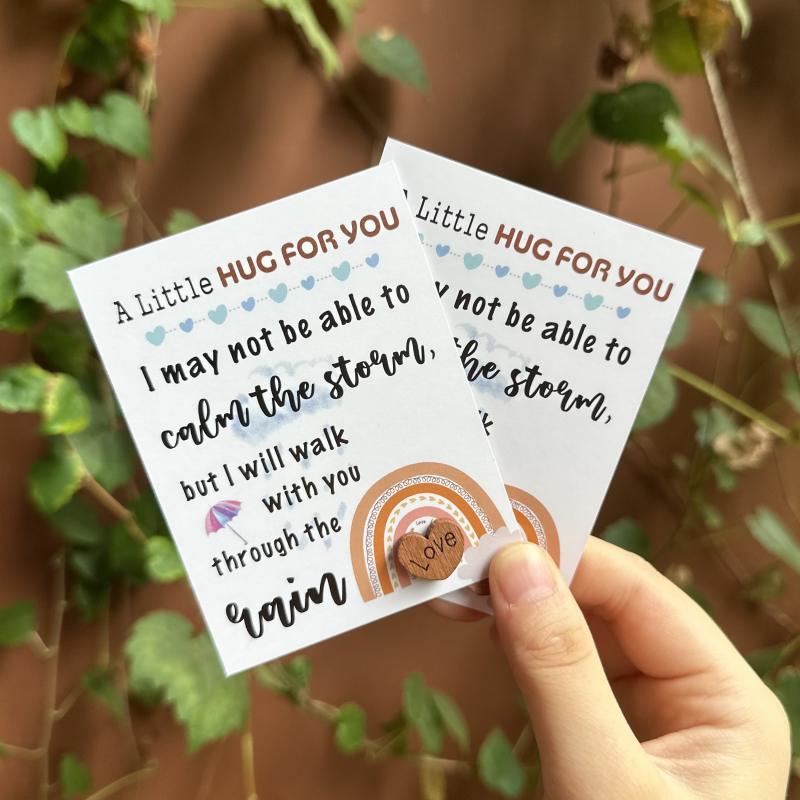 A Little HUG FOR YOU
I may not be able to
calm the storm,
but I will walk
with you
through the
rain
Love
Love
Little HUG FOR YOU
not be able to
the storm,